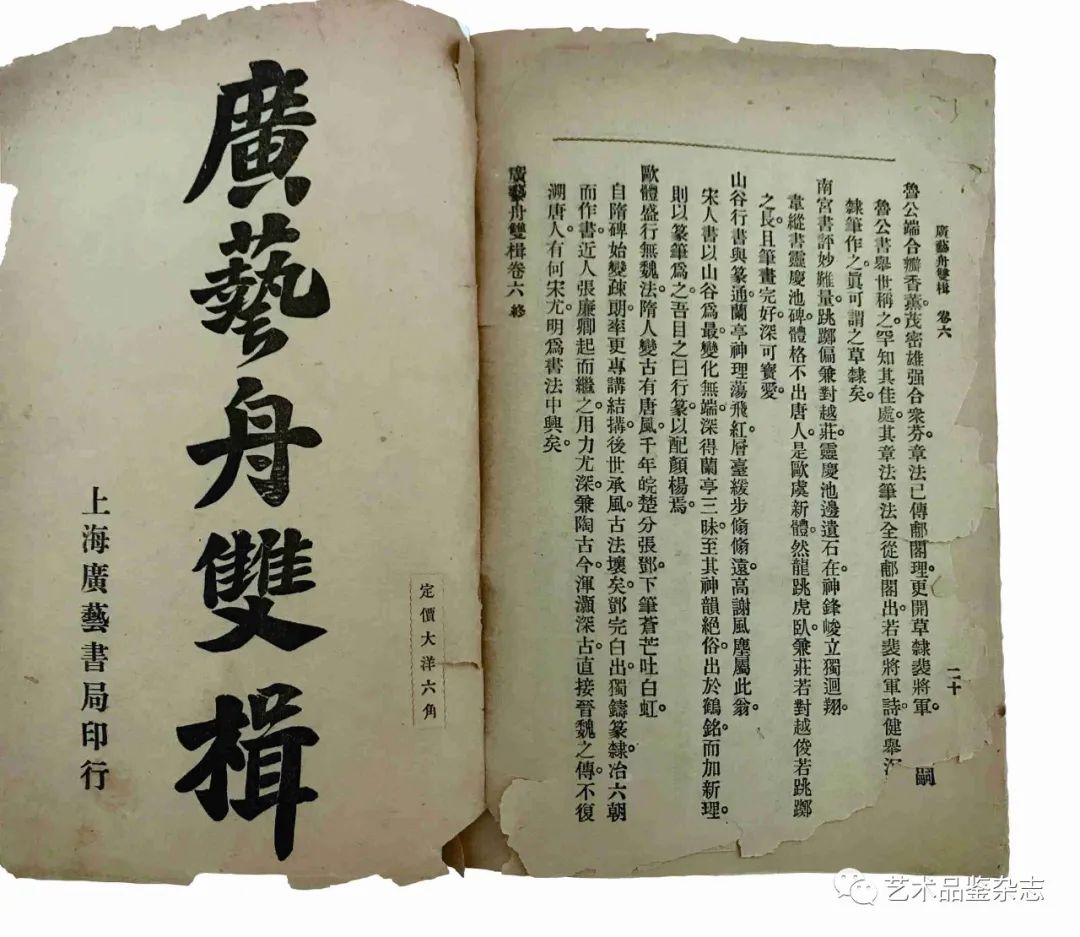 廣藝舟雙楫
上海廣藝書局印行
定價大洋六角
廣藝舟雙楫 卷六 二十
魯公端合瓣香薰。茂密雄强合衆芬。章法已傳郙閣理。更開草隸裴將軍。
魯公書舉世稱之。罕知其佳處。其章法筆法全從郙閣出。若裴將軍詩。健舉
隸筆作之。眞可謂之草隸矣。
南宮書評妙難量。跳擲偏兼對越莊。靈慶池邊遺石在。神鋒峻立獨迴翔。
韋縱書靈慶池碑。體格不出唐人。是歐虞新體。然龍跳虎臥。兼莊若對越。俊若跳擲
之長。且筆畫完好。深可寶愛。
山谷行書與篆通。蘭亭神理蕩飛紅。層臺緩步翛翛遠。高謝風塵屬此翁。
宋人書以山谷爲最。變化無端。深得蘭亭三昧。至其神韻絕俗。出於鶴銘。而加新理。
則以篆筆爲之。吾目之曰行篆。以配顏楊焉。
歐體盛行無魏法。隋人變古有唐風。千年皖楚分張鄧。下筆蒼芒吐白虹。
自隋碑始變疎朗。率更專講結搆。後世承風。古法壞矣。鄧完白出。獨鑄篆隸。冶六朝
而作書。近人張廉卿起而繼之。用力尤深。兼陶古今。渾灝深古。直接晉魏之傳。不復
溯唐人。有何宋尤明。爲書法中興矣。
廣藝舟雙楫卷六 終
嗣
艺术品鉴杂志